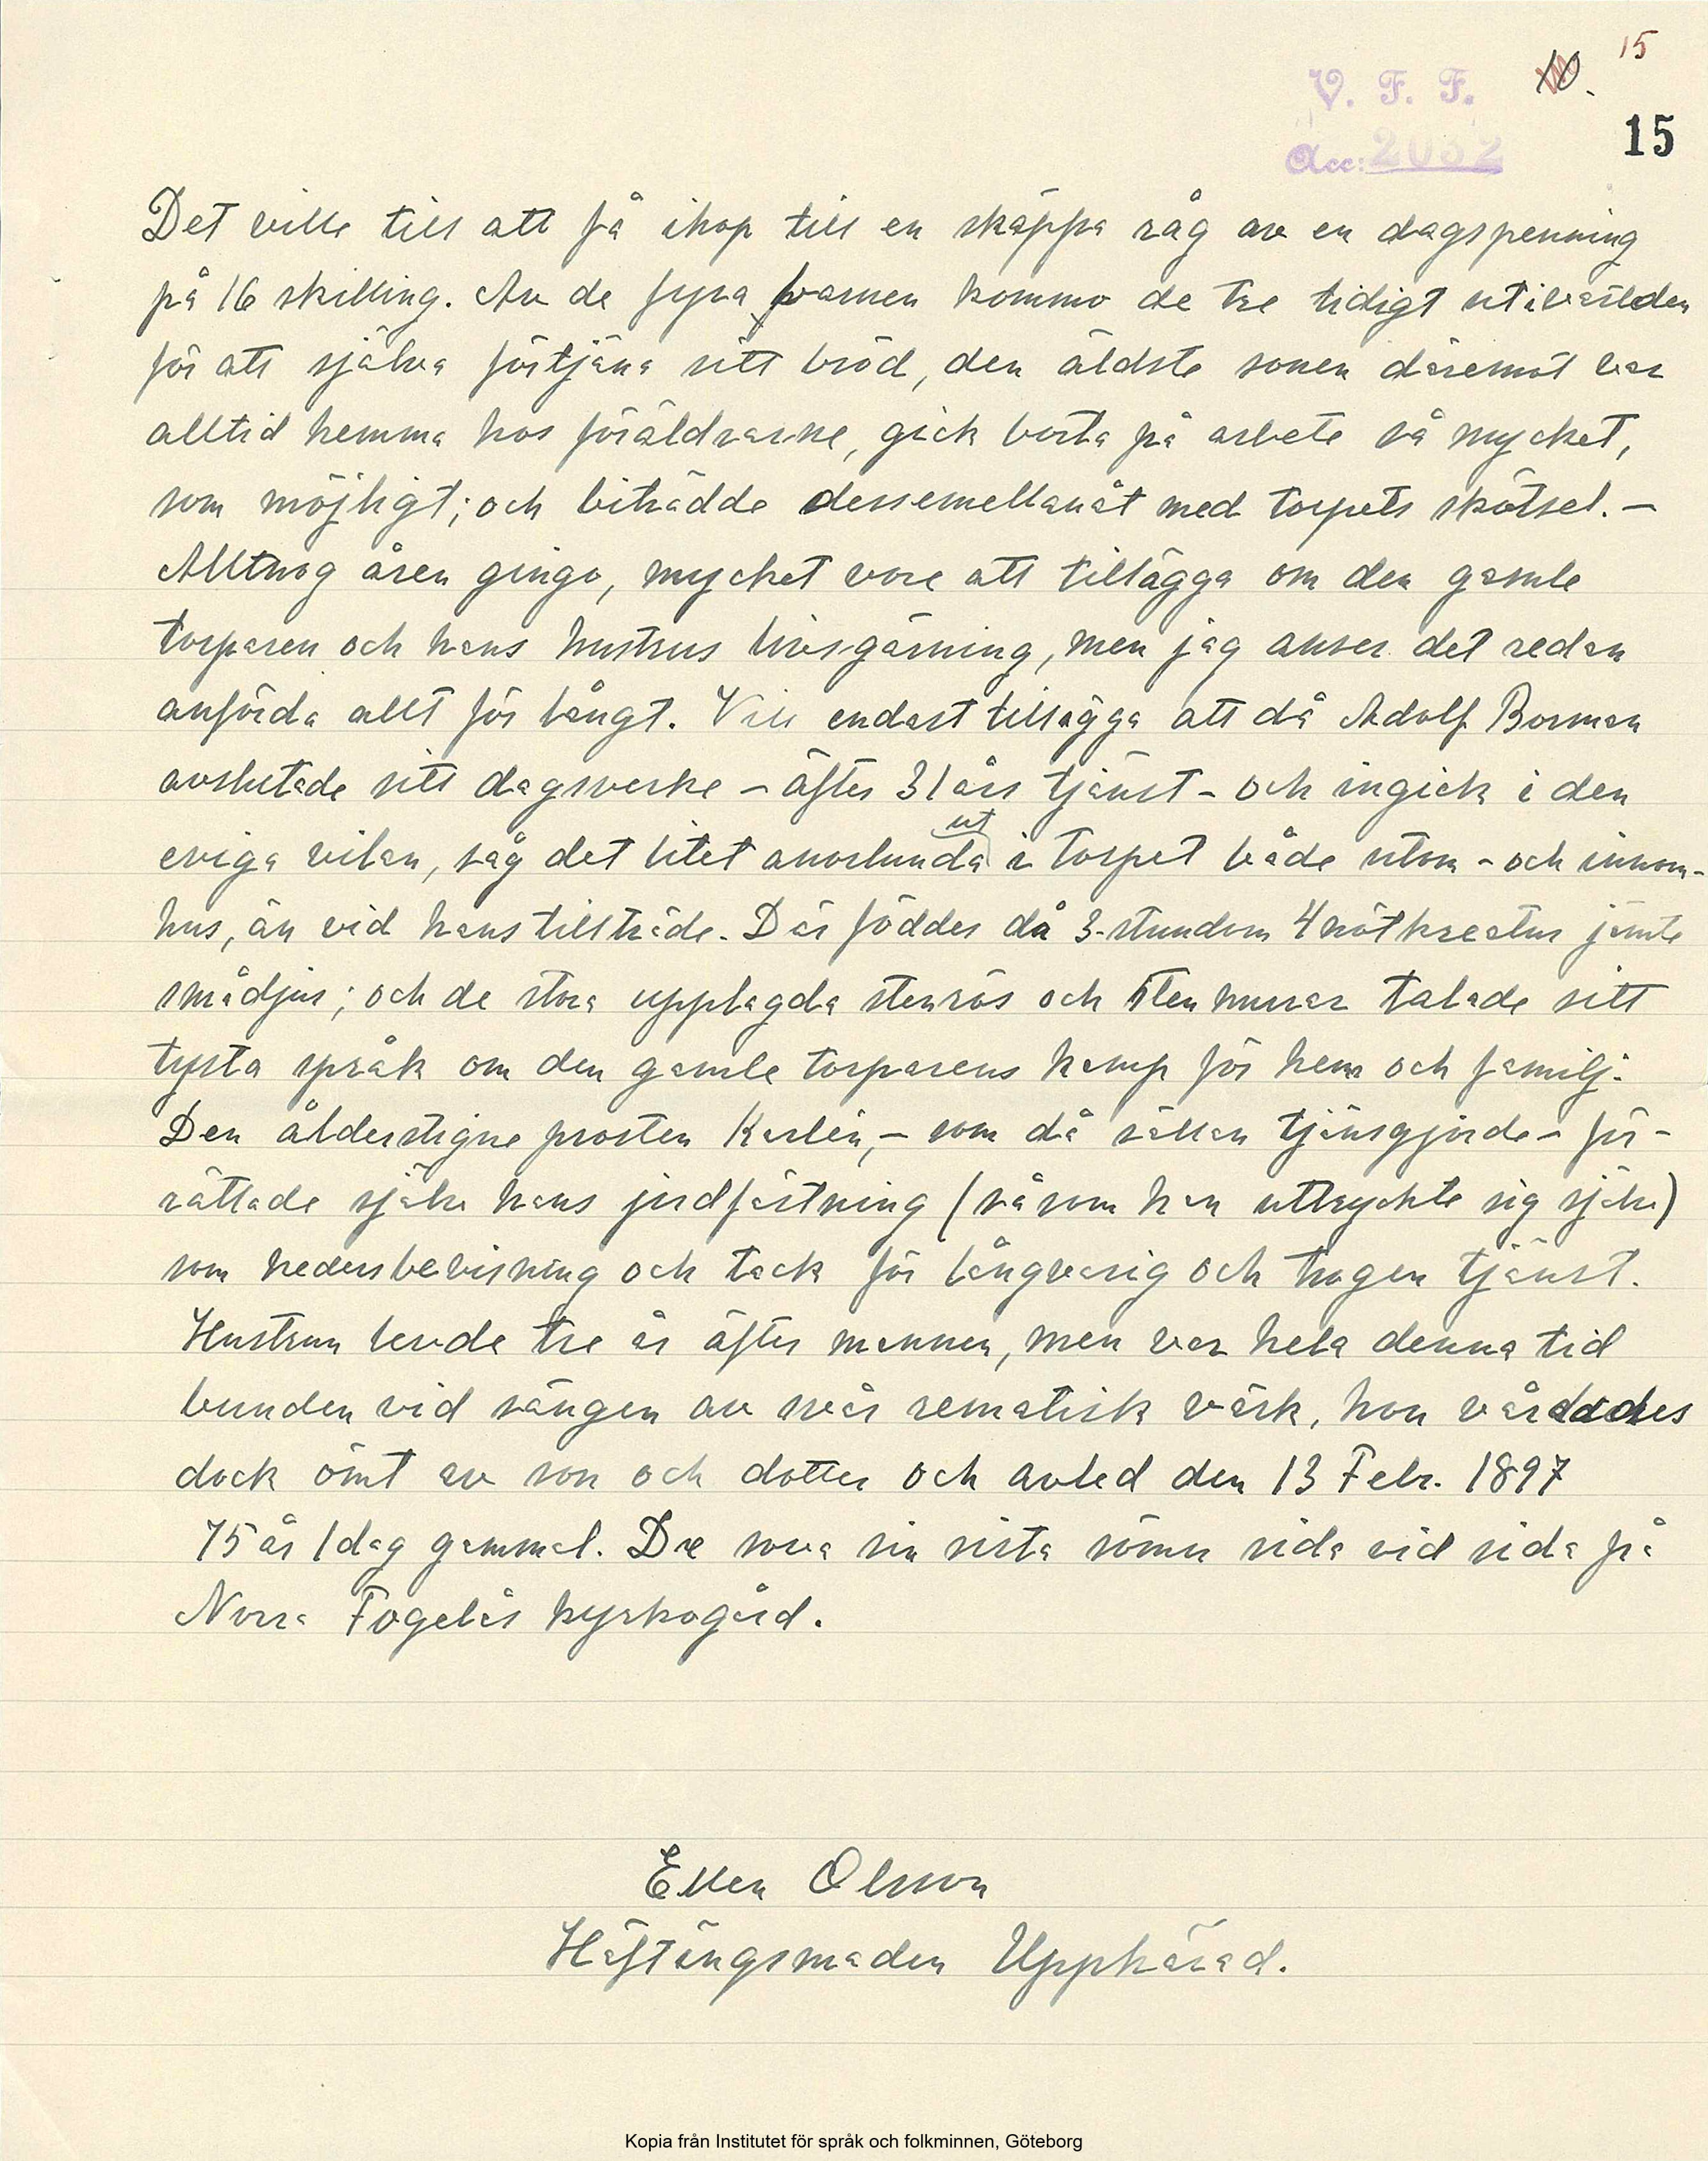 15
V. F. F. 10.
15
Acc: 2032
Det ville till att få ihop till en skäppa råg av en dagspenning
på 16 skilling. Av de fyra barnen kommo de tre tidigt ut i världen
för att själva förtjäna sitt bröd, den äldste sonen däremot var
alltid hemma hos föräldrarne, gick borta på arbete så mycket,
som möjligt; och biträdde dessemellanåt med torpets skötsel. –
Alltnog åren gingo, mycket vore att tillägga om den gamle
torparen och hans hustrus livsgärning, men jag anser det redan
anförda allt för långt. Vill endast tillägga att då Adolf Borman
avslutade sitt dagsverke – äfter 31 års tjänst – och ingick i den
eviga vilan, såg det litet annorlunda ut i torpet både utom - och innom-
hus, än vid hans tillträde. Där föddes då 3-stundom 4 nötkreatur jämte
smådjur; och de stora upplagda stenrös och stenmurar talade sitt
tysta språk om den gamle torparens kamp för hem och familj.
Den ålderstigne prosten Karlén, – som då sällan tjänsgjorde – för-
rättade själv hans jordfästning (såsom han uttryckte sig själv)
som hedersbevisning och tack för långvarig och trogen tjänst.
Hustrun levde tre år äfter mannen, men var hela denna tid
bunden vid sängen av svår rematisk värk, hon vårdades
dock ömt av son och dotter och avled den 13 Febr. 1897
75 år 1 dag gammal. De sova sin sista sömn sida vid sida på
Norra Fogelås kyrkogård.
Ellen Olsson
Häftängsmaden Upphärad.
Kopia från Institutet för språk och folkminnen, Göteborg